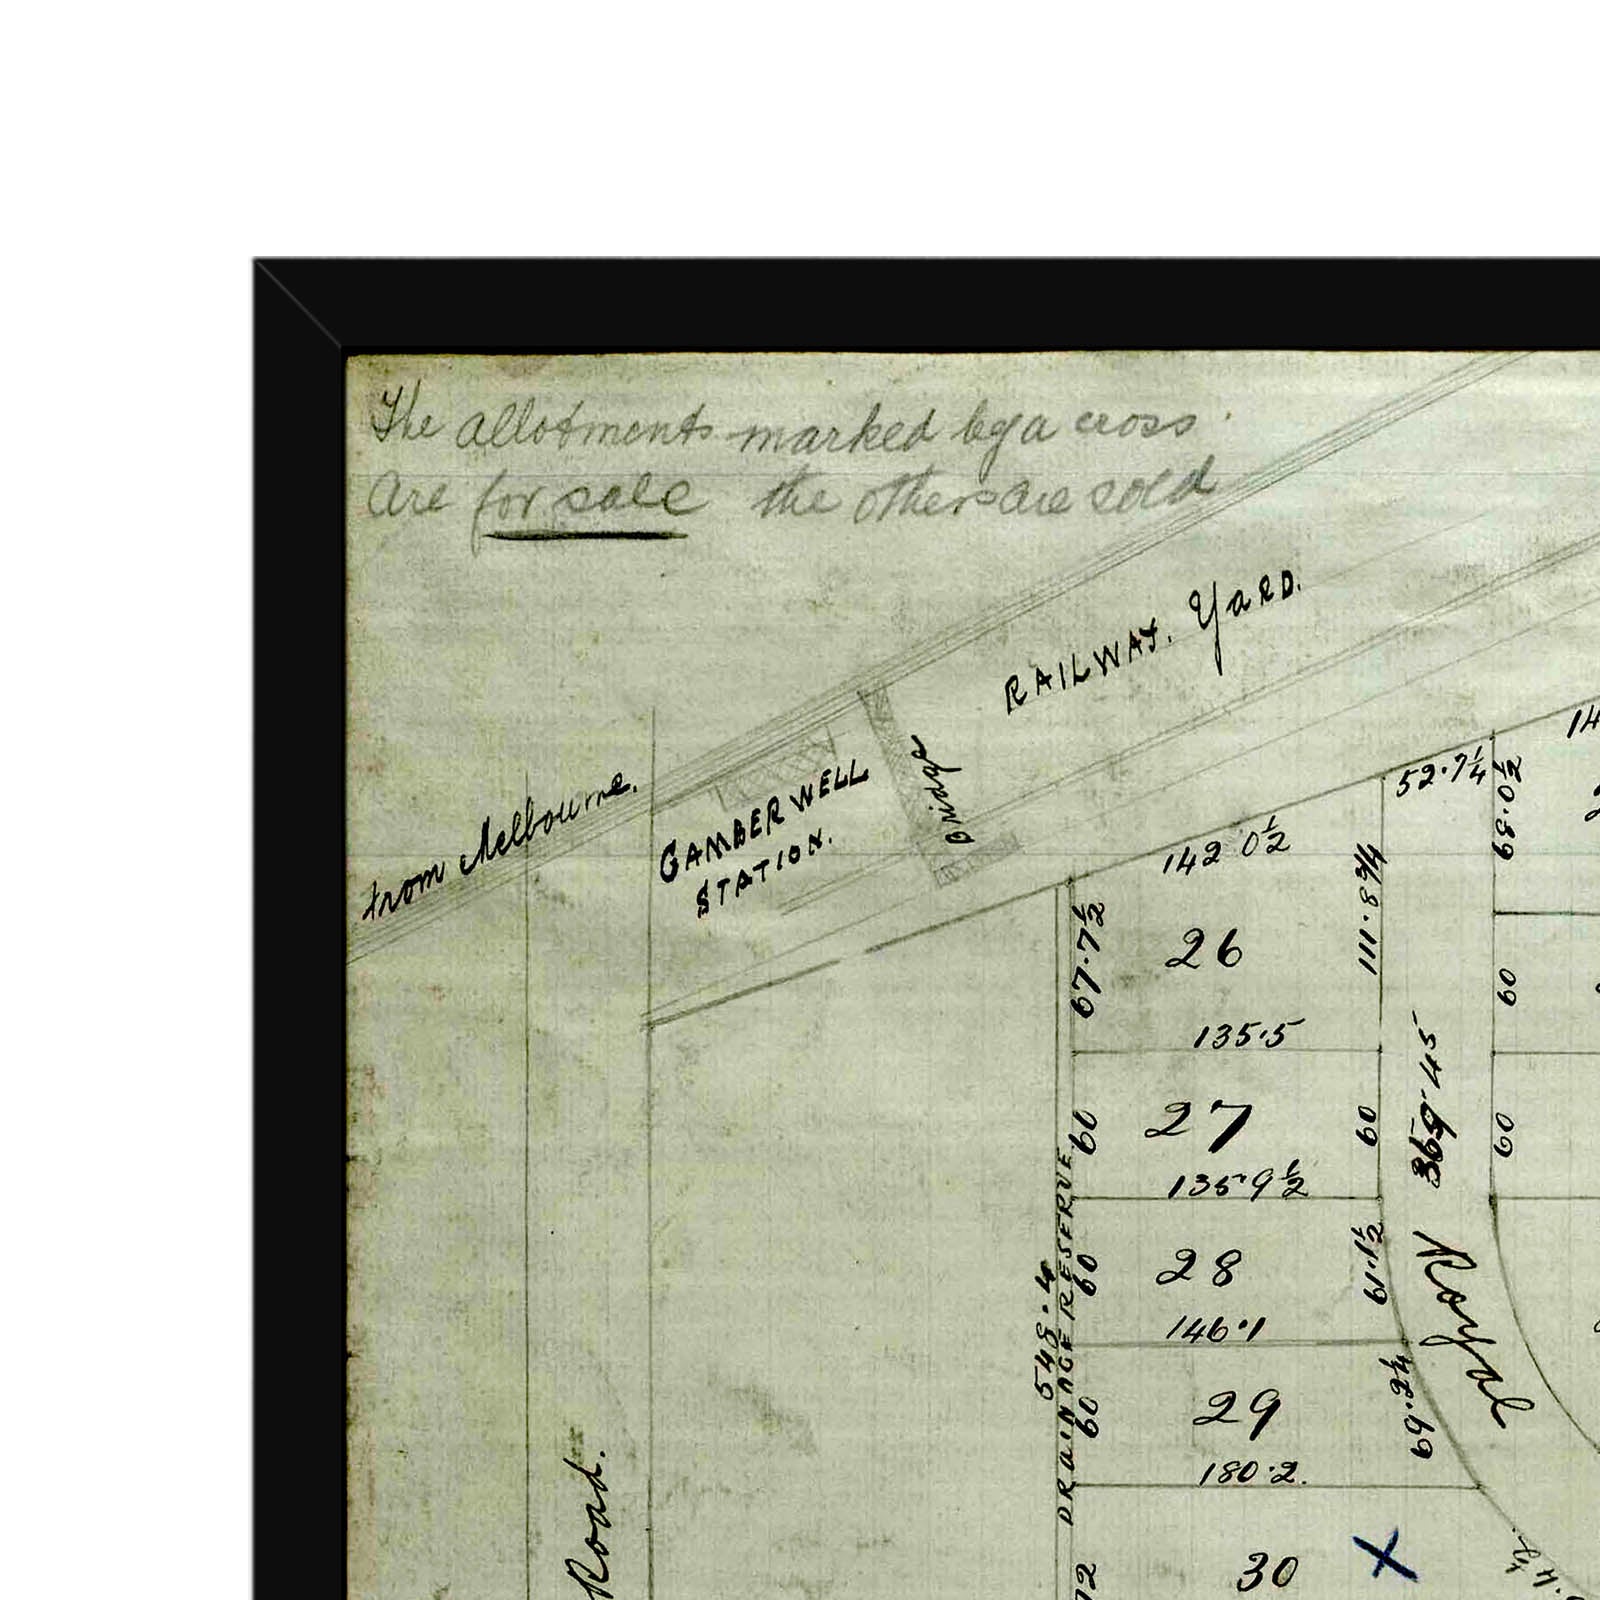 The allotments marked by a cross
are for sale the others are sold
RAILWAY. Yard.
from Melbourne.
CAMBERWELL
STATION.
Bridge
52·7¼
68·0½
142 0½
111·8¾
67·7½
26
60
135·5
369·45
27
60
60
60
135·9½
DRAINAGE RESERVE
548·4
28
60
61·1½
Royal
146·1
29
60
69·2¼
180·2.
Road.
30
X